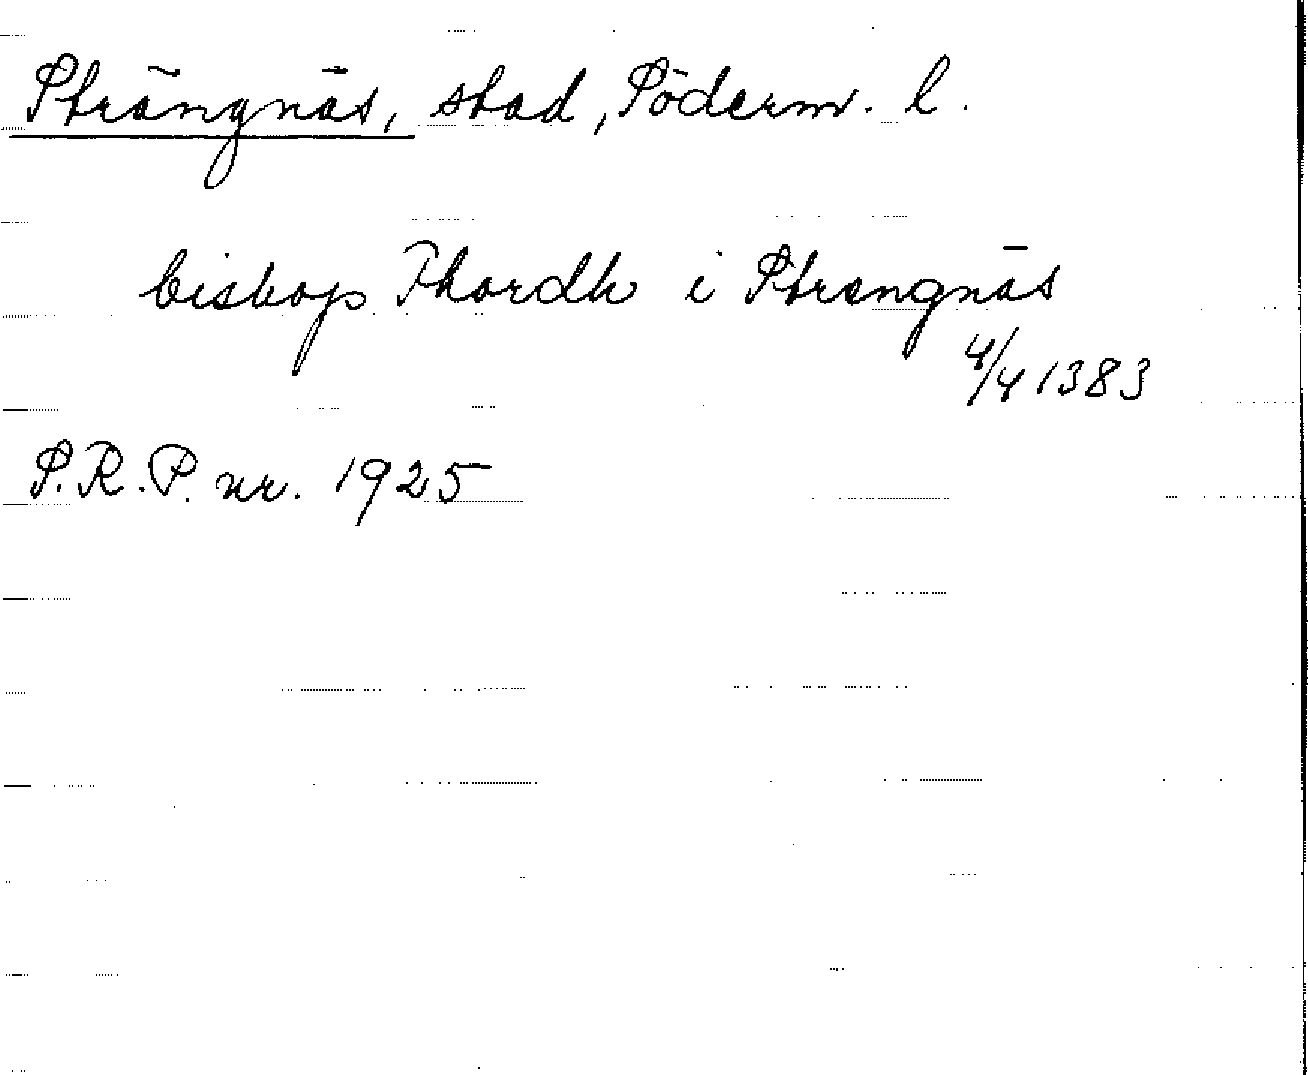 Strängnäs, stad, Söderm. l.
biskop Thordh i Strengnäs
4/4 1383
S.R.P. nr. 1925